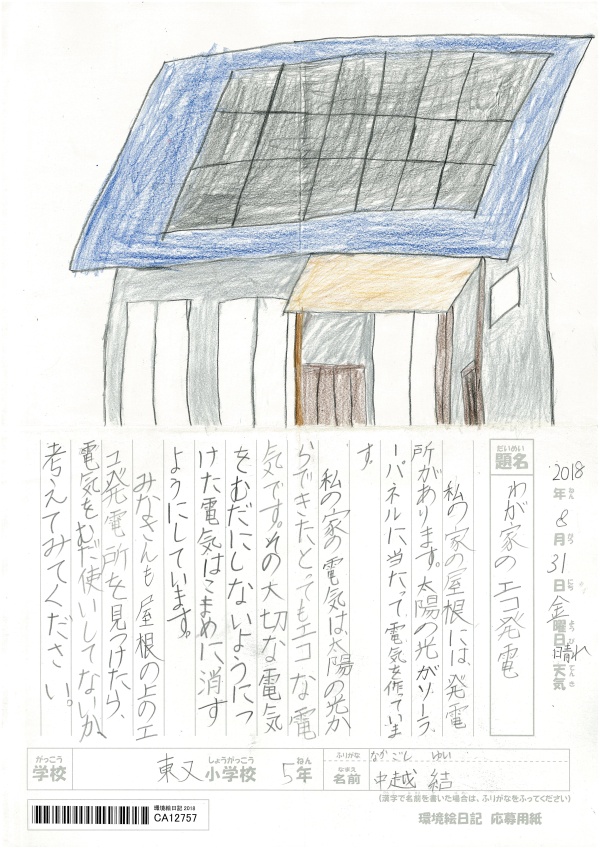 2018年8月31日金曜日晴れ天気
ねん がつ にち よう び てんき
だいめい
題名
わが家のエコ発電
私の家の屋根には、発電
所があります。太陽の光がソーラ
ーパネルに当たって電気を作っていま
す。
私の家の電気は、太陽の光か
らできた、とってもエコな電
気です。その大切な電気
をむだにしないようにつ
けた電気はこまめに、消す
ようにしています。
みなさんも屋根の上のエ
コ発電所を見つけたら、
電気をむだ使いしてないか、
考えてみてください。
がっこう しょうがっこう ねん
学校 東又小学校 5年
ふりがな なかごし ゆい
なまえ
名前 中越 結
(漢字で名前を書いた場合は、ふりがなをふってください)
環境絵日記 2018
CA12757
環境絵日記 応募用紙